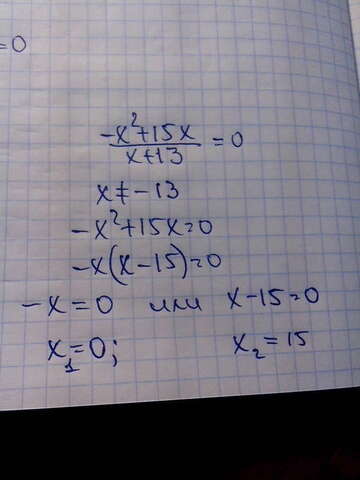 =0
-x²+15x
/
x+13 = 0
x≠-13
-x²+15x=0
-x(x-15)=0
-x=0 или x-15=0
x₁=0; x₂=15